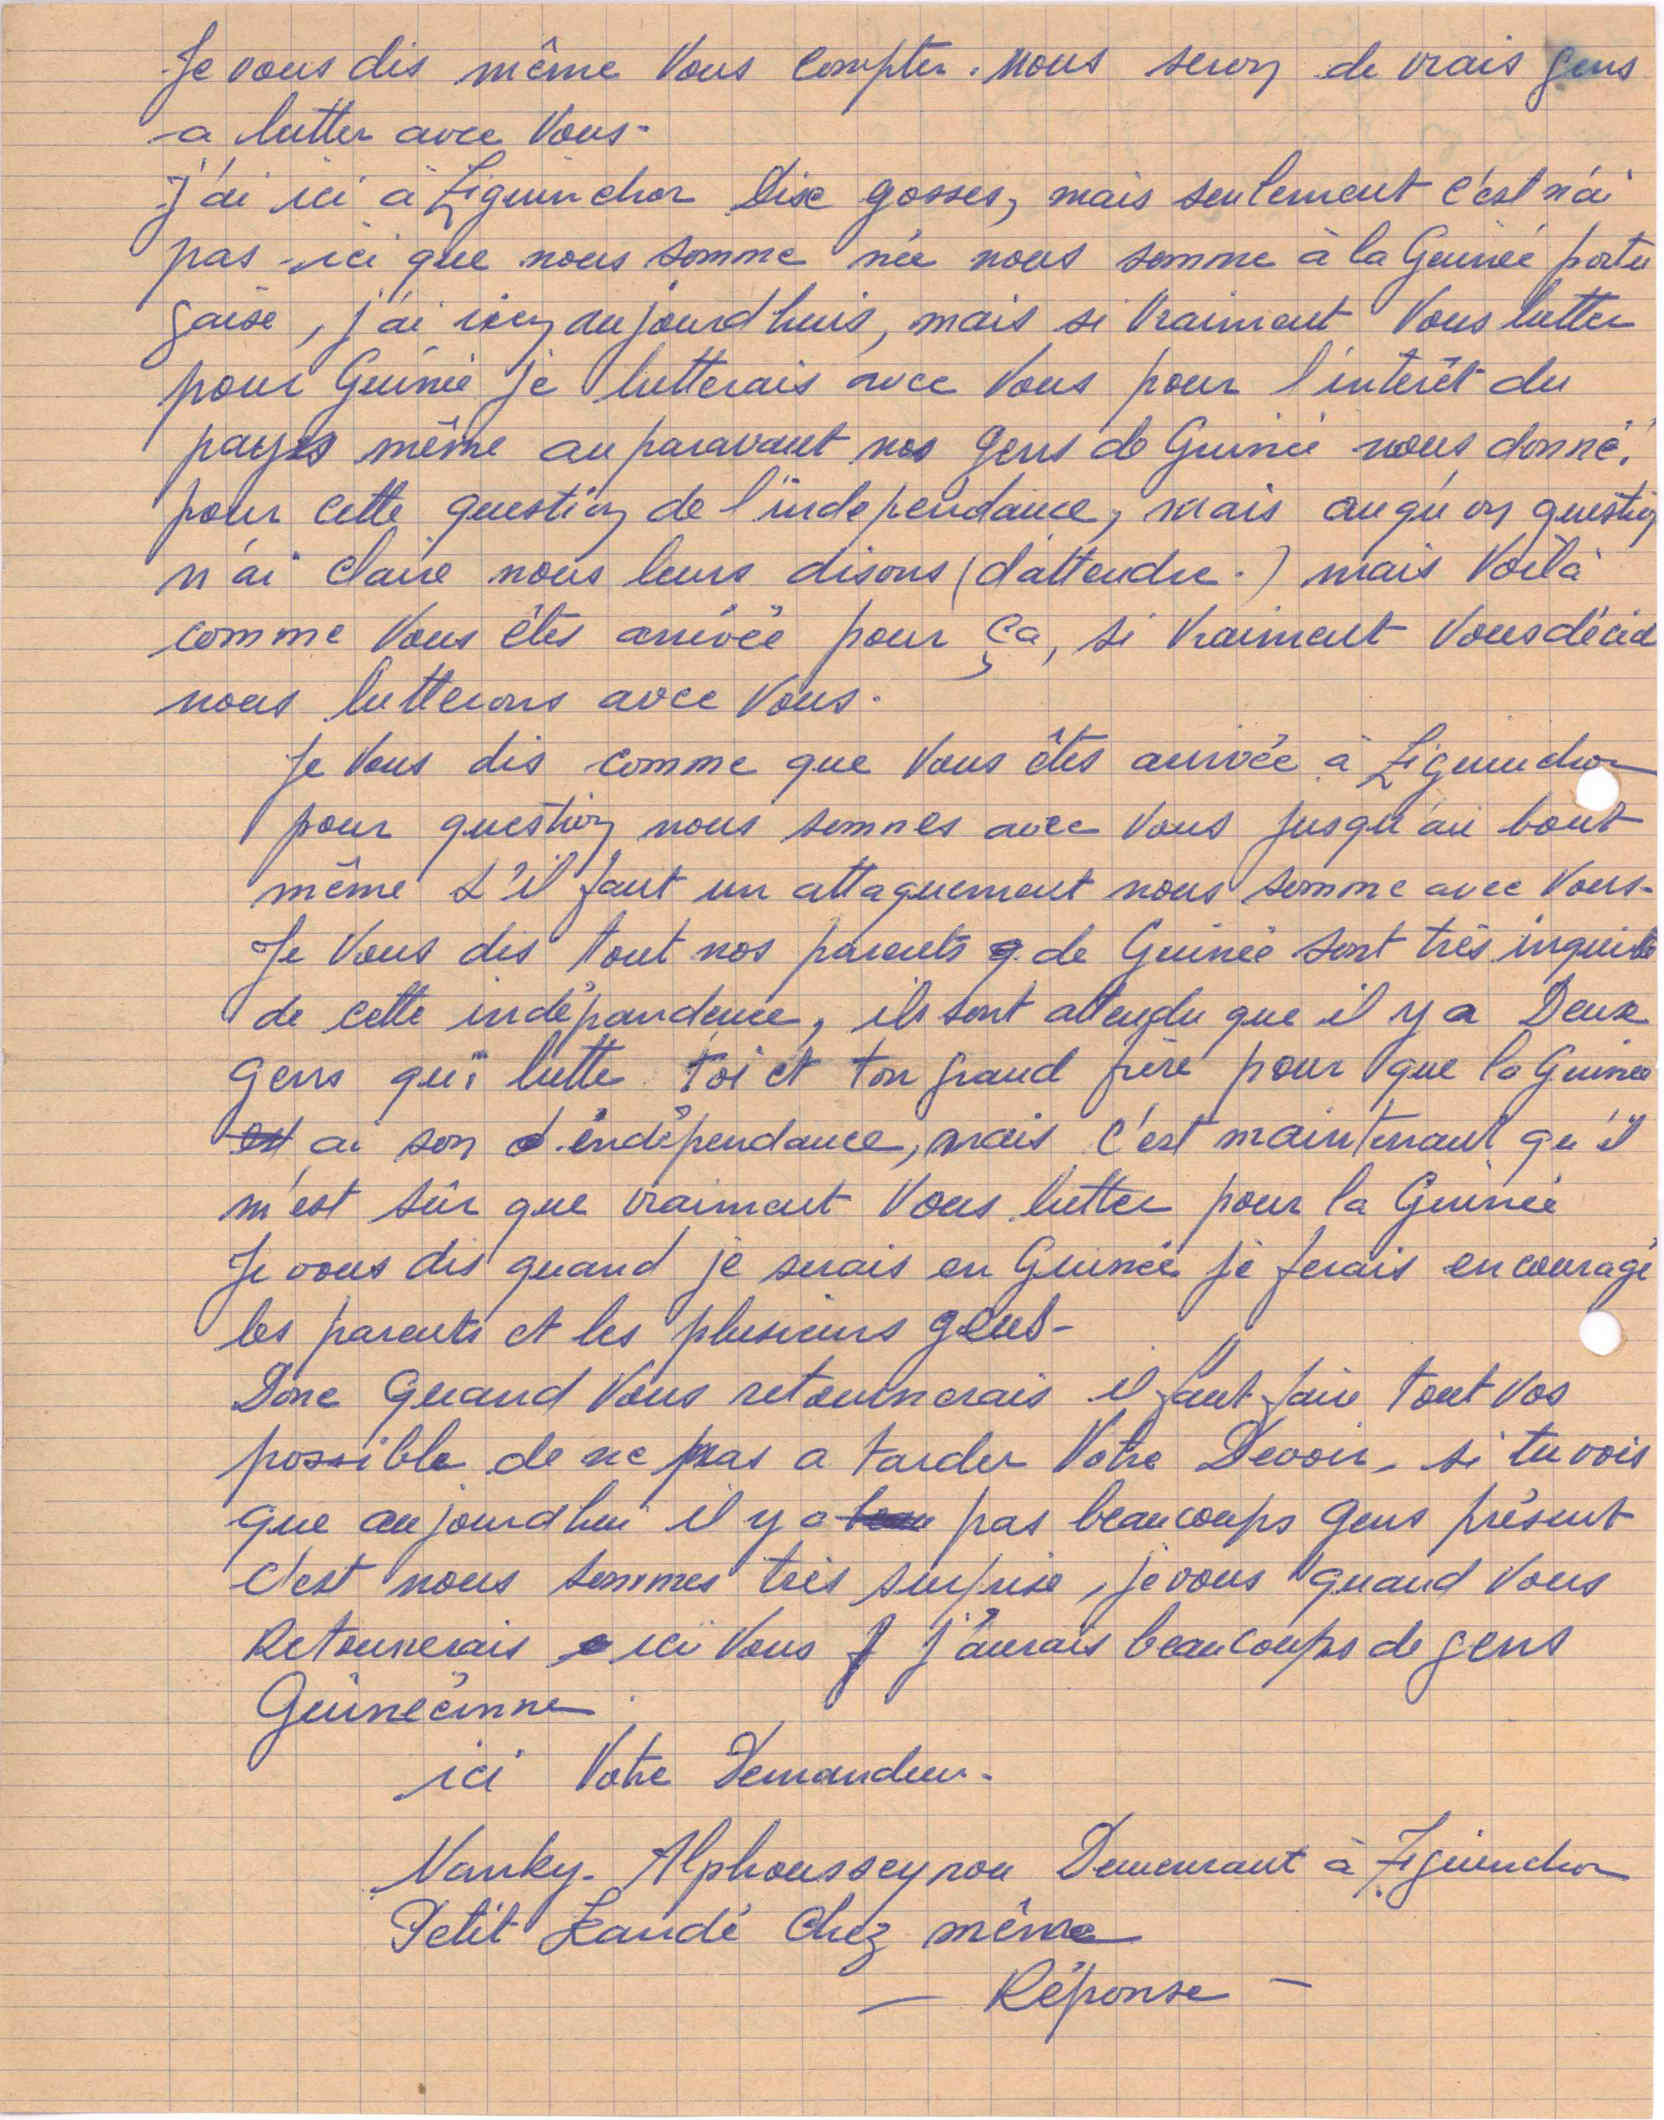 Je vous dis même Vous compter. nous seron de vrais gens
a lutter avec Vous-
J'ai ici à Ziguinchor Dix gosses, mais seulement c'est n'ai
pas ici que nous somme née nous somme à la Guinée portu
gaise, j'ai icy aujourd'huis, mais si Vraiment Vous lutter
pour Guinée je lutterais avec Vous pour l'intérêt du
pays même auparavant nos gens de Guinée nous donné.
pour cette question de l'independance, mais auqu'on question
n'ai claire nous leurs disons (d'attendre.) mais Voilà
comme Vous êtes arrivée pour ça, si Vraiment Vous décid
nous lutterons avec Vous.
Je Vous dis comme que Vous êtes arrivée à Ziguinchor
pour question nous sommes avec Vous jusqu'au bout
même s'il faut un attaquement nous somme avec Vous-
Je Vous dis tout nos parents de Guinée sont très inquiète
de cette indépandence, ils sont attendu que il y a Deux
gens qui lutte toi et ton grand frère pour que la Guinée
est ai son indépendance, mais c'est maintenant qu'il
m'est sûr que vraiment Vous lutter pour la Guinée
Je vous dis quand je serais en Guinée je ferais encouragé
les parents et les plusieurs gens-
Donc Quand Vous retournerais il faut faire tout Vos
possible de ne pas a tarder Votre Devoir- si tu vois
que aujourd'hui il y a pas beaucoups gens présent
c'est nous sommes très surprise, je vous quand Vous
Retournerais ici Vous j'aurais beaucoups de gens
Guinéeinne
ici Votre Demandeur-
Nanky- Alphousseynou Demeurant à Ziguinchor
Petit Kandé Chez même
- Réponse -